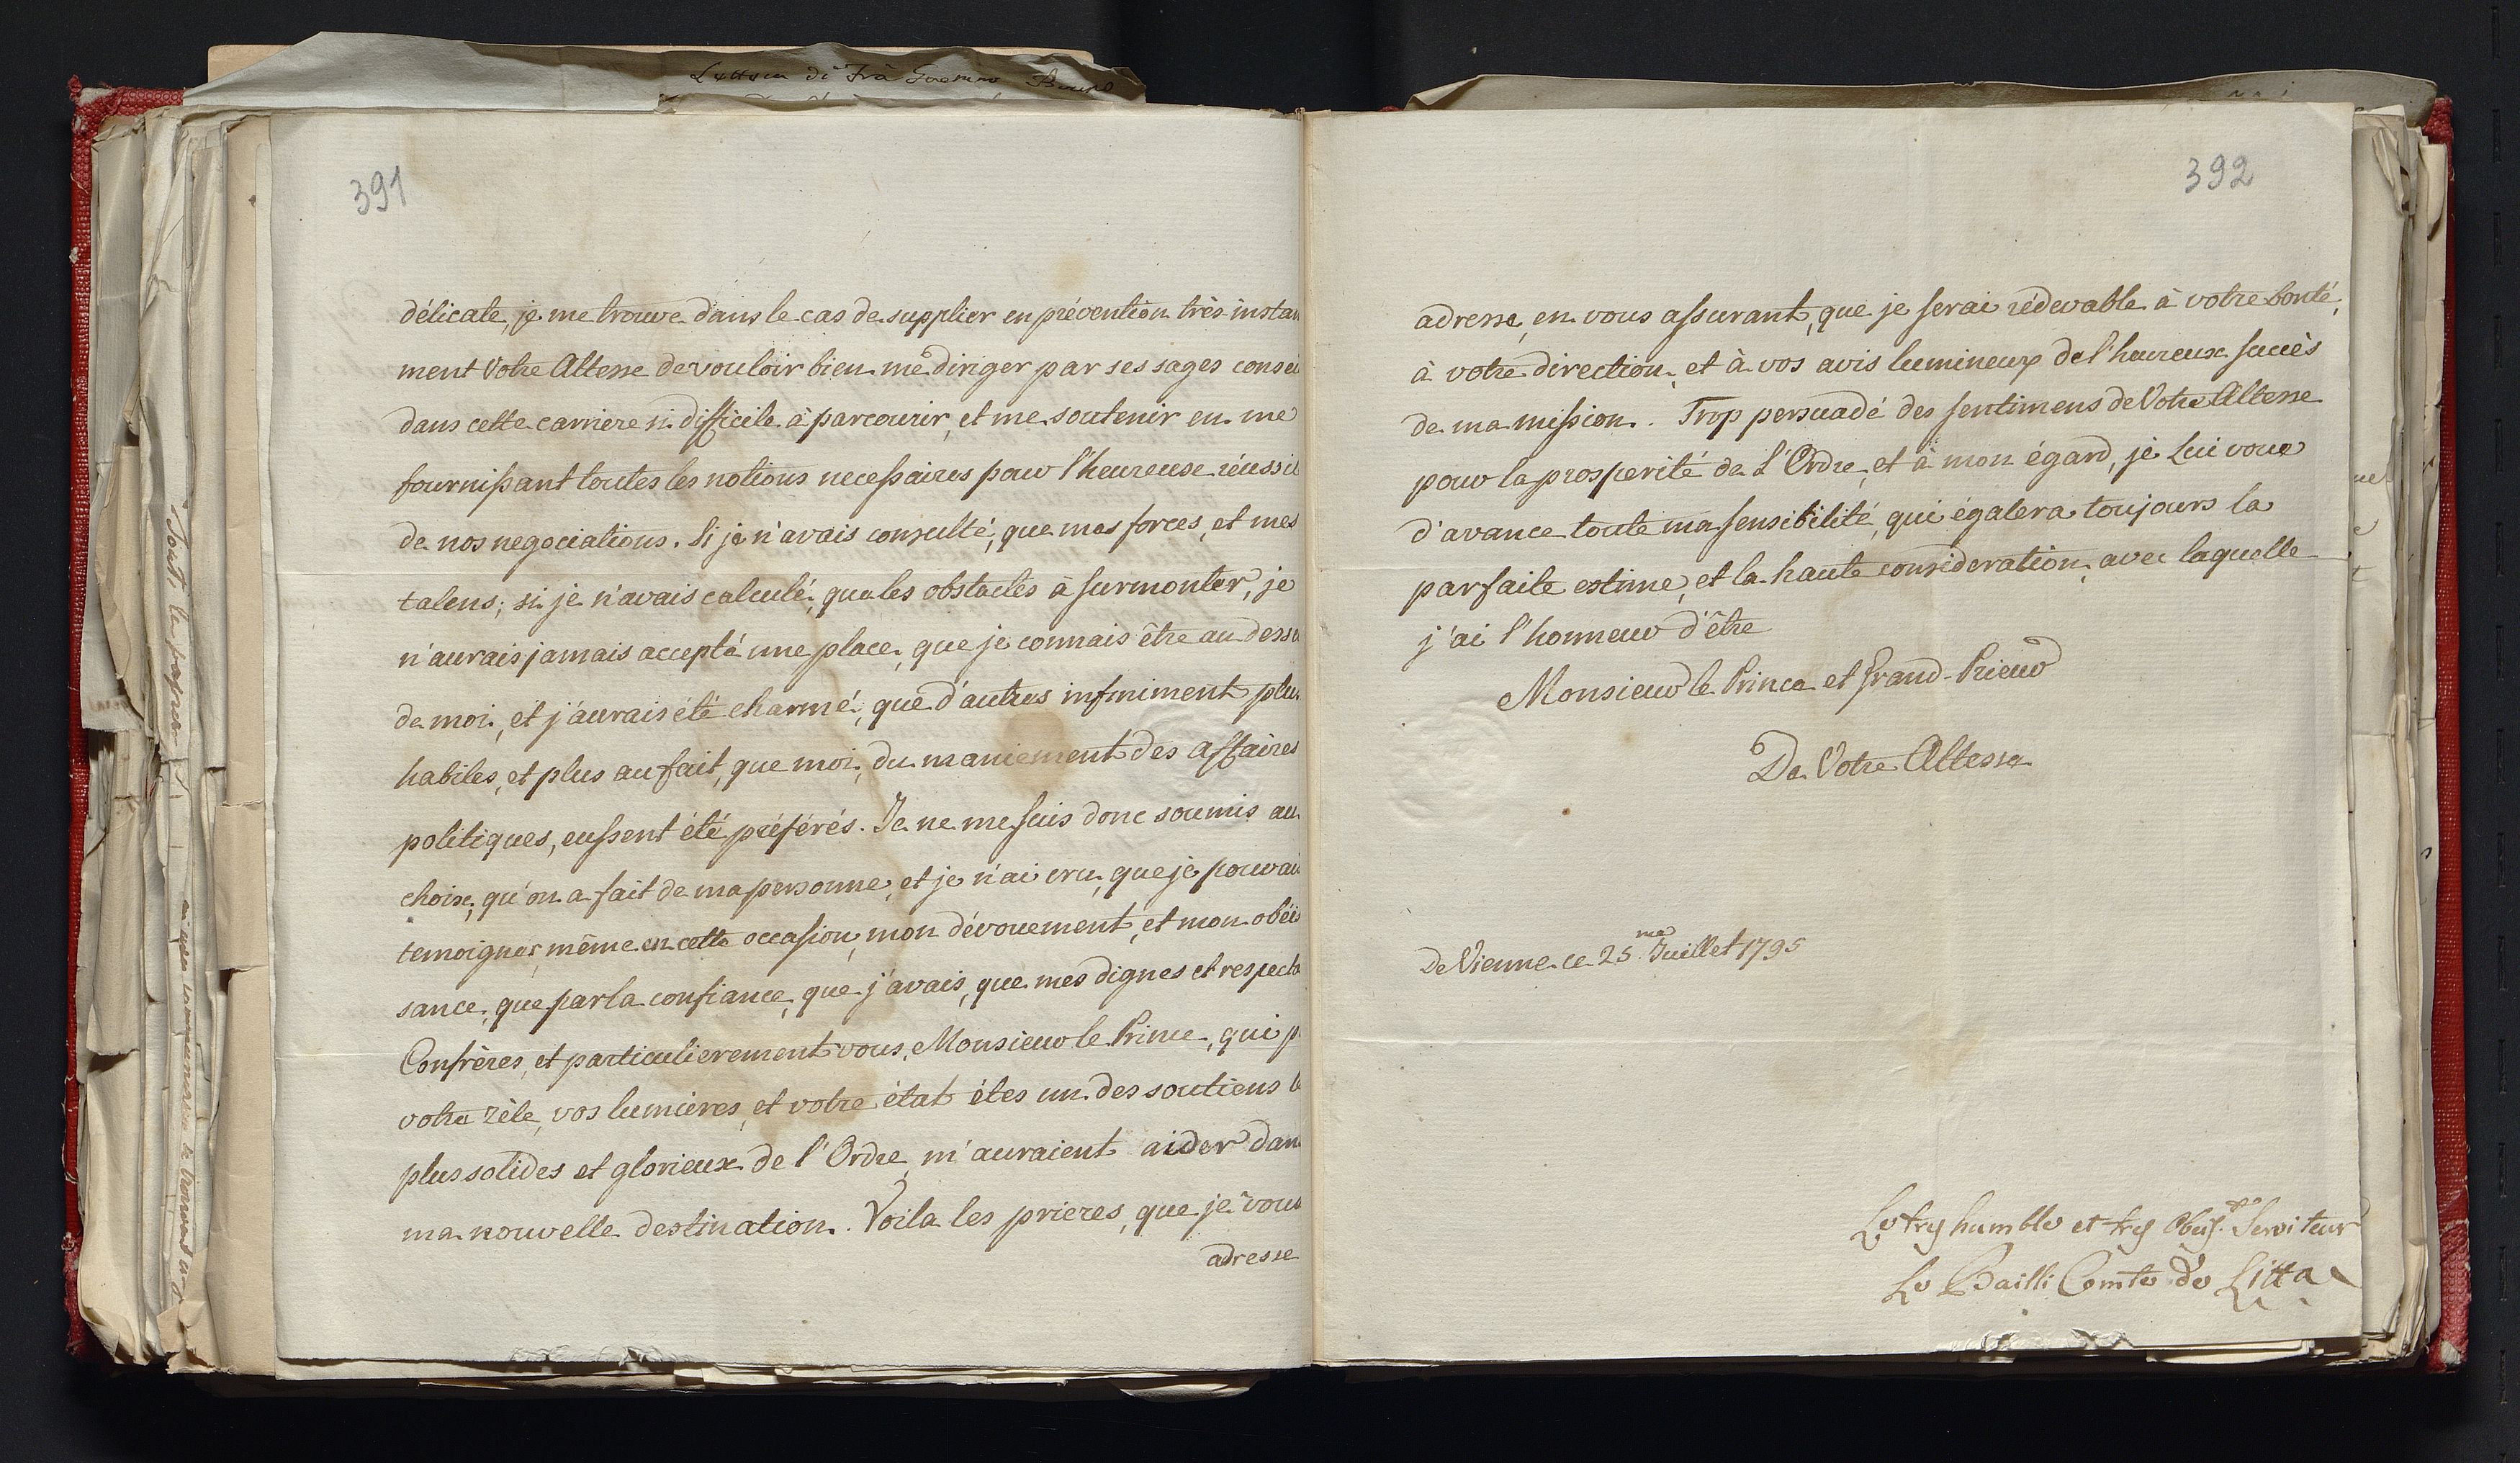 391
délicate, je me trouve dans le cas de supplier en prévention très-instan
ment Votre Altesse de vouloir bien me diriger par ses sages consei
dans cette carriere si difficile à parcourir, et me soutenir en me
fournissant toutes les notions necessaires pour l'heureuse réussit
de nos negociations. Si je n'avais consulté, que mes forces, et mes
talens; si je n'avais calculé, que les obstacles à surmonter, je
n'aurais jamais accepté une place, que je connais être au dessu
de moi, et j'aurais été charmé, que d'autres infiniment plus
habiles, et plus au fait, que moi, du maniement des affaires
politiques, eussent été préférés. Je ne me suis donc soumis au
choix, qu'on a fait de ma personne, et je n'ai cru, que je pouvais
temoigner, même en cette occasion, mon dévouement, et mon obéis
sance, que par la confiance, que j'avais, que mes dignes et respecta
Confrères, et particulierement vous, Monsieur le Prince, qui p
votre zèle, vos lumières, et votre état êtes un des soutiens le
plus solides et glorieux de l'Ordre, m'auraient aider dan
ma nouvelle destination. Voila les prieres, que je vous
adresse
392
adresse, en vous assurant, que je serai rédevable à votre bonté,
à votre direction, et à vos avis lumineux de l'heureux succès
de ma mission. Trop persuadé des sentimens de Votre Altesse
pour la prosperité de L'Ordre, et à mon égard, je Lui voue
d'avance toute ma sensibilité, qui égalera toujours la
parfaite estime, et la haute consideration, avec laquelle
j'ai l'honneur d'être
Monsieur le Prince et Grand-Prieur
De Votre Altesse
De Vienne ce 25.me Juillet 1795
Le trez humble et trez Obeis.te Serviteur
Le Bailli Comte de Litta